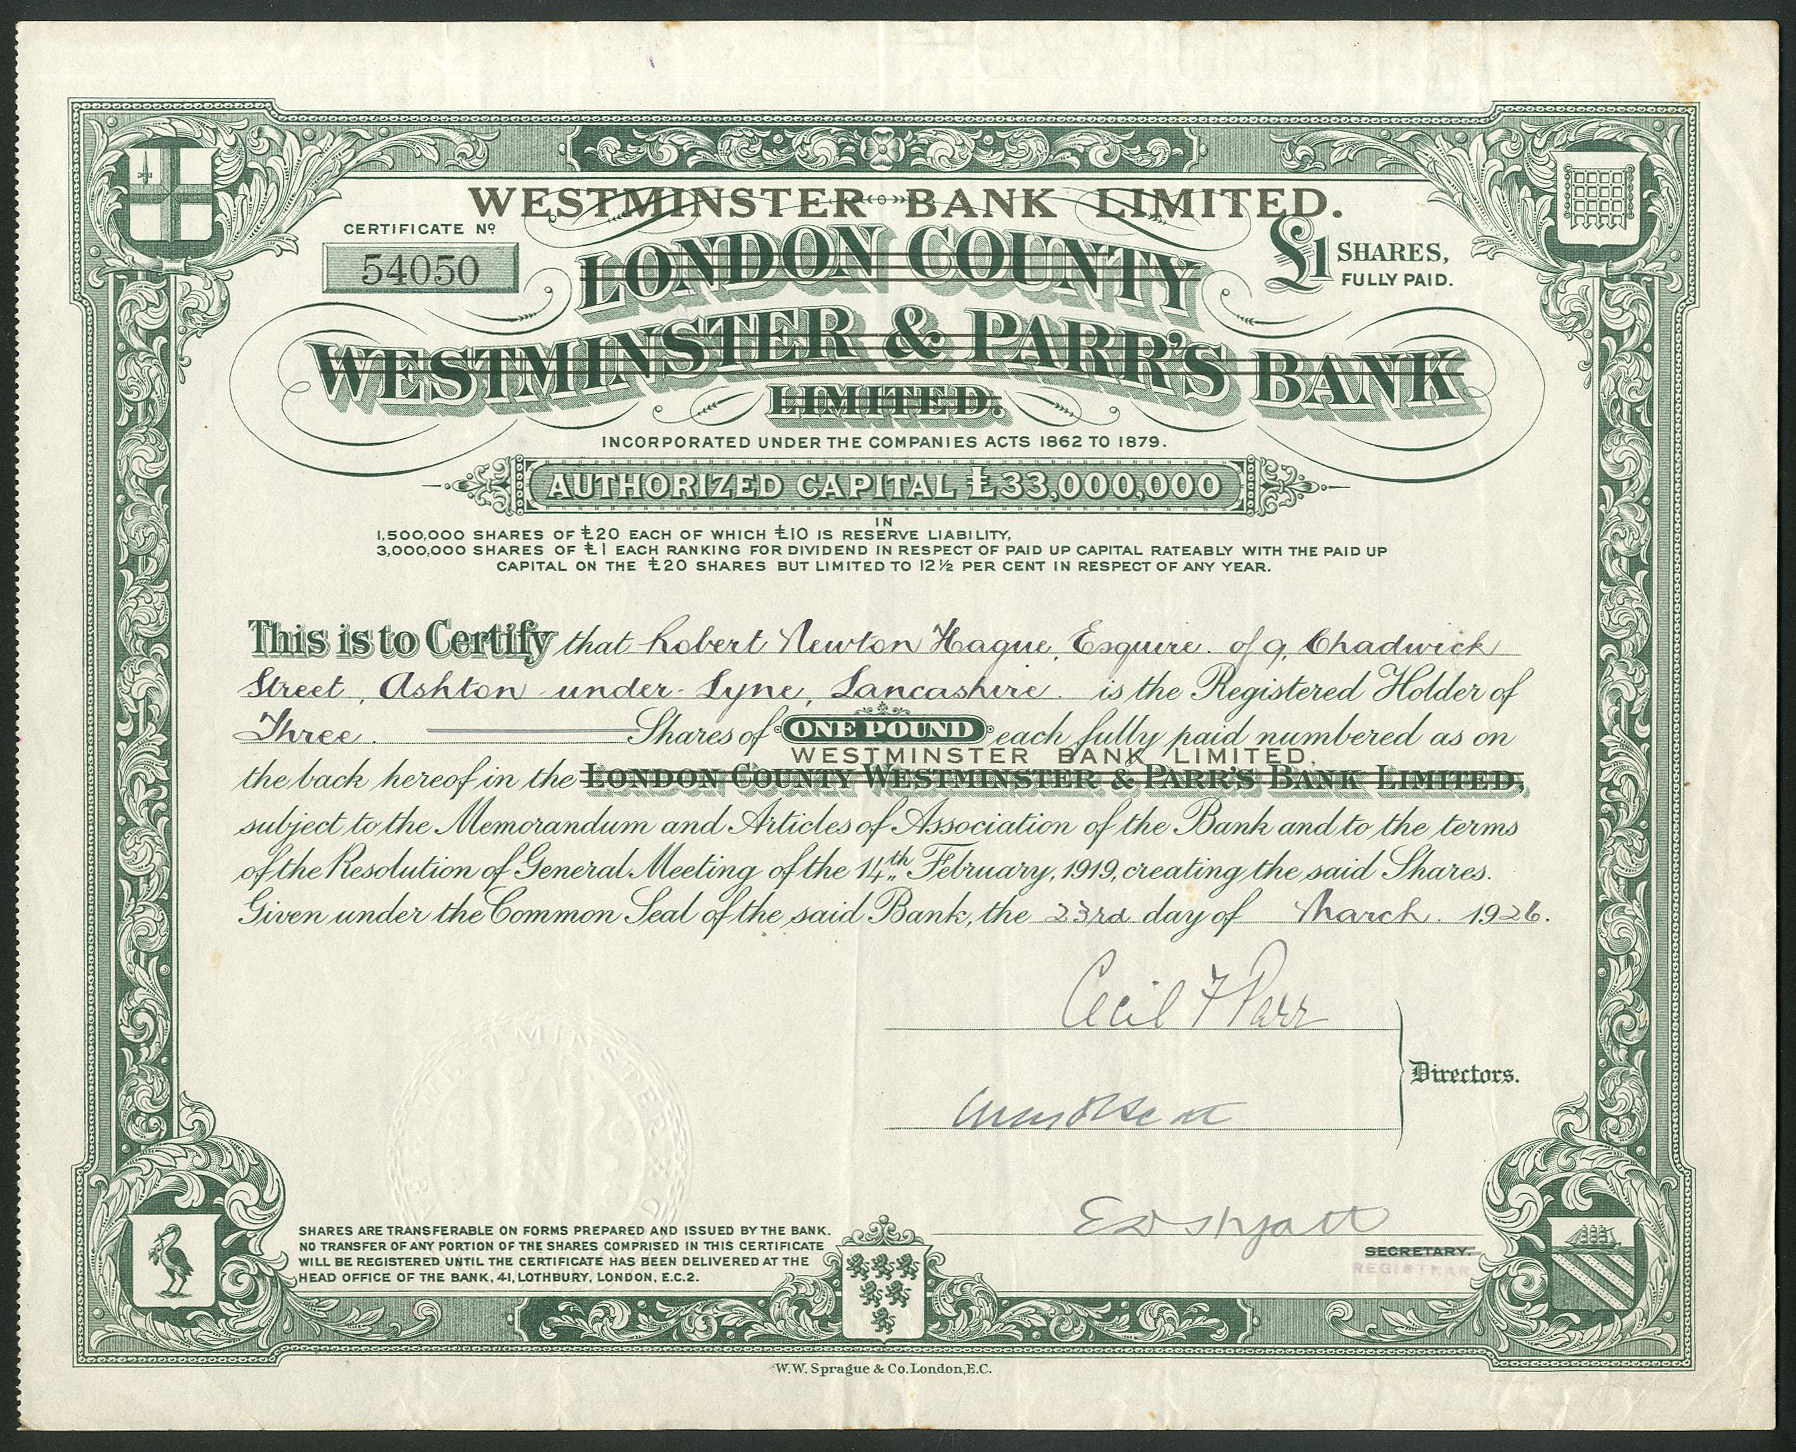 WESTMINSTER BANK LIMITED.
CERTIFICATE Nº
54050
£1 SHARES,
FULLY PAID.
LONDON COUNTY
WESTMINSTER & PARR'S BANK
LIMITED.
INCORPORATED UNDER THE COMPANIES ACTS 1862 TO 1879.
AUTHORIZED CAPITAL £33,000,000
IN
1,500,000 SHARES OF £20 EACH OF WHICH £10 IS RESERVE LIABILITY,
3,000,000 SHARES OF £1 EACH RANKING FOR DIVIDEND IN RESPECT OF PAID UP CAPITAL RATEABLY WITH THE PAID UP
CAPITAL ON THE £20 SHARES BUT LIMITED TO 12½ PER CENT IN RESPECT OF ANY YEAR.
This is to Certify that Robert Newton Hague, Esquire. of 9, Chadwick
Street, Ashton-under-Lyne, Lancashire. is the Registered Holder of
Three. Shares of ONE POUND each fully paid numbered as on
WESTMINSTER BANK LIMITED,
the back hereof in the LONDON COUNTY WESTMINSTER & PARR'S BANK LIMITED,
subject to the Memorandum and Articles of Association of the Bank and to the terms
of the Resolution of General Meeting of the 14th February, 1919, creating the said Shares.
Given under the Common Seal of the said Bank, the 23rd day of March. 1926.
Cecil F Parr
Directors.
SHARES ARE TRANSFERABLE ON FORMS PREPARED AND ISSUED BY THE BANK.
NO TRANSFER OF ANY PORTION OF THE SHARES COMPRISED IN THIS CERTIFICATE
WILL BE REGISTERED UNTIL THE CERTIFICATE HAS BEEN DELIVERED AT THE
HEAD OFFICE OF THE BANK, 41, LOTHBURY, LONDON, E.C.2.
SECRETARY.
REGISTRAR
W.W. Sprague & Co. London, E.C.